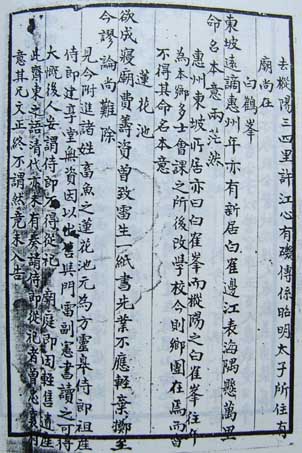 去樅陽三四里許江心有磯傳係昭明太子所住有
廟尚在
白鶴峯
東坡遠謫惠州年亦有新居白崔邊江表海隅懸萬里
命名本意兩茫然
惠州東坡所居亦曰白崔峯而樅陽之白崔峯往年
為本鄉多士會課之所後改學校今則鄉園在焉而皆
不得其命名本意
蓮花池
欲成寢廟費籌資曾致雷生一紙書先業不應輕棄擲至
今謬論尚難除
見今附進諸姓畜魚之蓮花池元為方靈皋侍郎祖產
侍郎建享堂無資因以出售與門雷副憲書讀之可得
大概後人妄謂侍郎不得從祀兩庭即因輕售遺產
此齊東之語清代亦未有奏請侍郎從祀者曾忠襄
意其兄文正終不謂然竟未入告